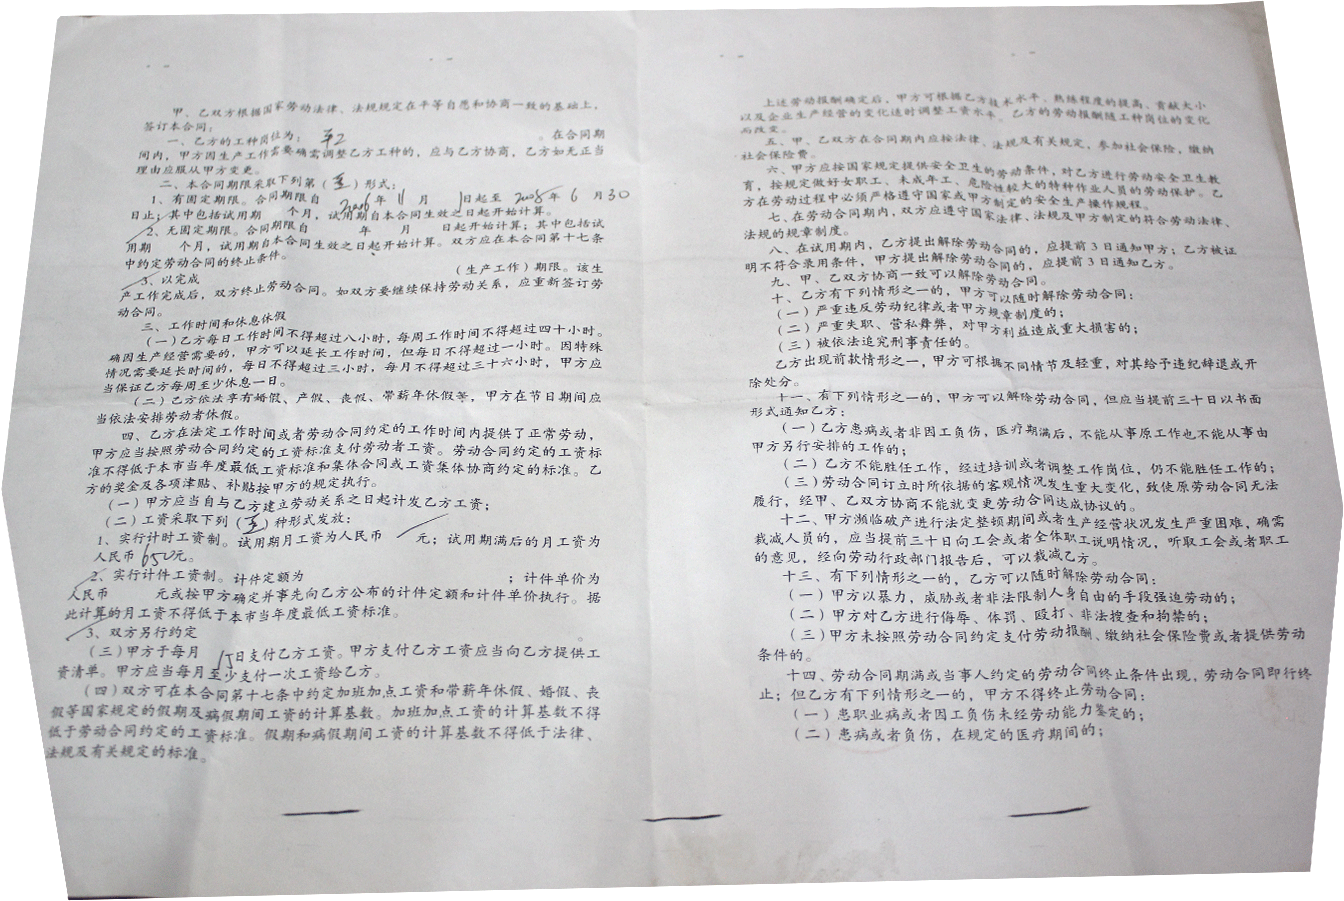 甲、乙双方根据国家劳动法律、法规规定在平等自愿和协商一致的基础上，
签订本合同；
一、乙方的工种岗位为： 。在合同期
间内，甲方因生产工作需要确需调整乙方工种的，应与乙方协商，乙方如无正当
理由应服从甲方变更。
二、本合同期限采取下列第（ ）形式：
1、有固定期限。合同期限自 2006 年 11 月 1日起至 2008 年 6 月 30
日止；其中包括试用期 个月，试用期自本合同生效之日起开始计算。
2、无固定期限。合同期限自 年 月 日起开始计算；其中包括试
用期 个月，试用期自本合同生效之日起开始计算。双方应在本合同第十七条
中约定劳动合同的终止条件。
3、以完成 （生产工作）期限。该生
产工作完成后，双方终止劳动合同。如双方要继续保持劳动关系，应重新签订劳
动合同。
三、工作时间和休息休假
（一）乙方每日工作时间不得超过八小时，每周工作时间不得超过四十小时。
确因生产经营需要的，甲方可以延长工作时间，但每日不得超过一小时。因特殊
情况需要延长时间的，每日不得超过三小时，每月不得超过三十六小时，甲方应
当保证乙方每周至少休息一日。
（二）乙方依法享有婚假、产假、丧假、带薪年休假等，甲方在节日期间应
当依法安排劳动者休假。
四、乙方在法定工作时间或者劳动合同约定的工作时间内提供了正常劳动，
甲方应当按照劳动合同约定的工资标准支付劳动者工资。劳动合同约定的工资标
准不得低于本市当年度最低工资标准和集体合同或工资集体协商约定的标准。乙
方的奖金及各项津贴、补贴按甲方的规定执行。
（一）甲方应当自与乙方建立劳动关系之日起计发乙方工资；
（二）工资采取下列（ ）种形式发放：
1、实行计时工资制。试用期月工资为人民币 元；试用期满后的月工资为
人民币 650元。
2、实行计件工资制。计件定额为 ；计件单价为
人民币 元或按甲方确定并事先向乙方公布的计件定额和计件单价执行。据
此计算的月工资不得低于本市当年度最低工资标准。
3、双方另行约定 。
（三）甲方于每月 15日支付乙方工资。甲方支付乙方工资应当向乙方提供工
资清单。甲方应当每月至少支付一次工资给乙方。
（四）双方可在本合同第十七条中约定加班加点工资和带薪年休假、婚假、丧
假等国家规定的假期及病假期间工资的计算基数。加班加点工资的计算基数不得
低于劳动合同约定的工资标准。假期和病假期间工资的计算基数不得低于法律、
法规及有关规定的标准。
上述劳动报酬确定后，甲方可根据乙方技术水平、熟练程度的提高、贡献大小
以及企业生产经营的变化适时调整工资水平。乙方的劳动报酬随工种岗位的变化
而改变。
五、甲、乙双方在合同期内应按法律、法规及有关规定，参加社会保险，缴纳
社会保险费。
六、甲方应按国家规定提供安全卫生的劳动条件，对乙方进行劳动安全卫生教
育，按规定做好女职工、未成年工、危险性较大的特种作业人员的劳动保护。乙
方在劳动过程中必须严格遵守国家或甲方制定的安全生产操作规程。
七、在劳动合同期内，双方应遵守国家法律、法规及甲方制定的符合劳动法律、
法规的规章制度。
八、在试用期内，乙方提出解除劳动合同的，应提前3日通知甲方；乙方被证
明不符合录用条件，甲方提出解除劳动合同的，应提前3日通知乙方。
九、甲、乙双方协商一致可以解除劳动合同。
十、乙方有下列情形之一的，甲方可以随时解除劳动合同：
（一）严重违反劳动纪律或者甲方规章制度的；
（二）严重失职、营私舞弊，对甲方利益造成重大损害的；
（三）被依法追究刑事责任的。
乙方出现前款情形之一，甲方可根据不同情节及轻重，对其给予违纪辞退或开
除处分。
十一、有下列情形之一的，甲方可以解除劳动合同，但应当提前三十日以书面
形式通知乙方：
（一）乙方患病或者非因工负伤，医疗期满后，不能从事原工作也不能从事由
甲方另行安排的工作的；
（二）乙方不能胜任工作，经过培训或者调整工作岗位，仍不能胜任工作的；
（三）劳动合同订立时所依据的客观情况发生重大变化，致使原劳动合同无法
履行，经甲、乙双方协商不能就变更劳动合同达成协议的。
十二、甲方濒临破产进行法定整顿期间或者生产经营状况发生严重困难，确需
裁减人员的，应当提前三十日向工会或者全体职工说明情况，听取工会或者职工
的意见，经向劳动行政部门报告后，可以裁减乙方。
十三、有下列情形之一的，乙方可以随时解除劳动合同：
（一）甲方以暴力，威胁或者非法限制人身自由的手段强迫劳动的；
（二）甲方对乙方进行侮辱、体罚、殴打、非法搜查和拘禁的；
（三）甲方未按照劳动合同约定支付劳动报酬、缴纳社会保险费或者提供劳动
条件的。
十四、劳动合同期满或当事人约定的劳动合同终止条件出现，劳动合同即行终
止；但乙方有下列情形之一的，甲方不得终止劳动合同：
（一）患职业病或者因工负伤未经劳动能力鉴定的；
（二）患病或者负伤，在规定的医疗期间的；